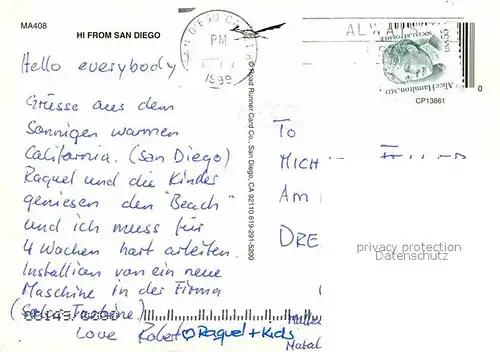 MA408
HI FROM SAN DIEGO
SAN DIEGO C
PM
1999
ALWA
Alice Hamilton, MD
SOCIAL REFORMER
USA 55
CP13861
0
Hello everybody
Grüsse aus dem
Sonnigen warmen
California. (San Diego)
Raquel und die Kinder
geniesen den "Beach"
und ich muss für
4 Wochen hart arbeiten.
Installion von ein neue
Maschine in der Firma
Love Robert ♡ Raquel + Kids
© Road Runner Card Co., San Diego, CA 92110 619-291-5200
TO
MICH
AM
DRE
privacy protection
Datenschutz